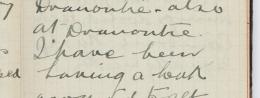 Dranoutre - also
at Dranoutre.
I have been
having a look